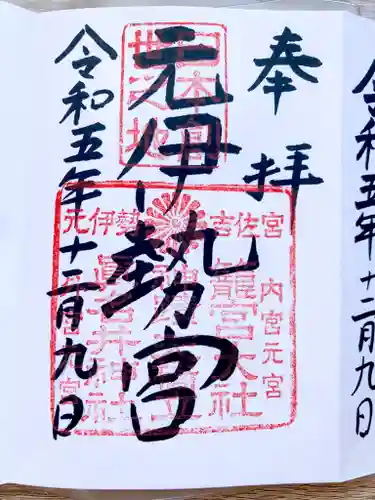 奉拝
元伊勢宮
令和五年十二月九日
元伊勢
吉佐宮
籠宮大社
内宮元宮
眞名井神社
令和五年十二月九日